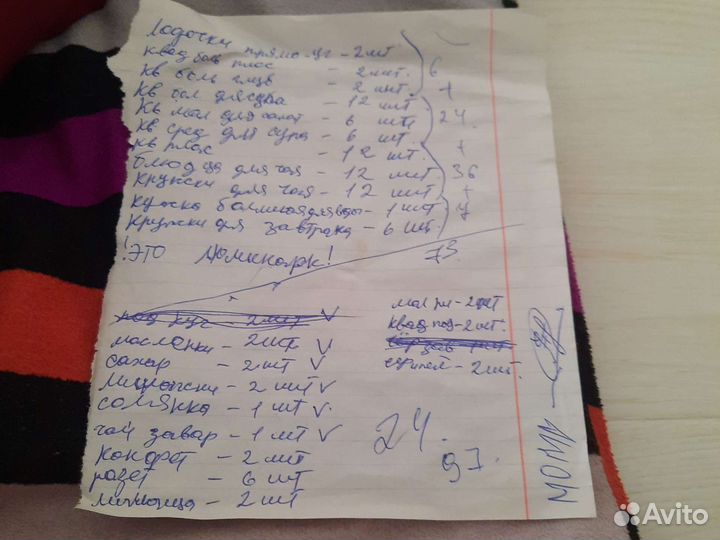 Лодочки прямо-уг - 2 шт
Квад боль плос - 2 шт. 6
Кв боль глуб - 2 шт. +
Кв бол для супа - 12 шт
Кв мал для салат - 6 шт 24
Кв сред для супа - 6 шт. +
Кв плос - 12 шт.
блюдца для чая - 12 шт. 36
Кружки для чая - 12 шт +
Кружка большая для воды - 1 шт 7
Кружки для завтрака - 6 шт.
!ЭТО Люминарк! 73.
под круг - 2 шт V
масленки - 2 шт V
сахар - 2 шт V
- 2 шт V
солянка - 1 шт V
чай завар - 1 шт V
конфет - 2 шт
розет - 6 шт
- 2 шт
- 2 шт
квад под - 2 шт.
- 2 шт.
24.
97.
Avito